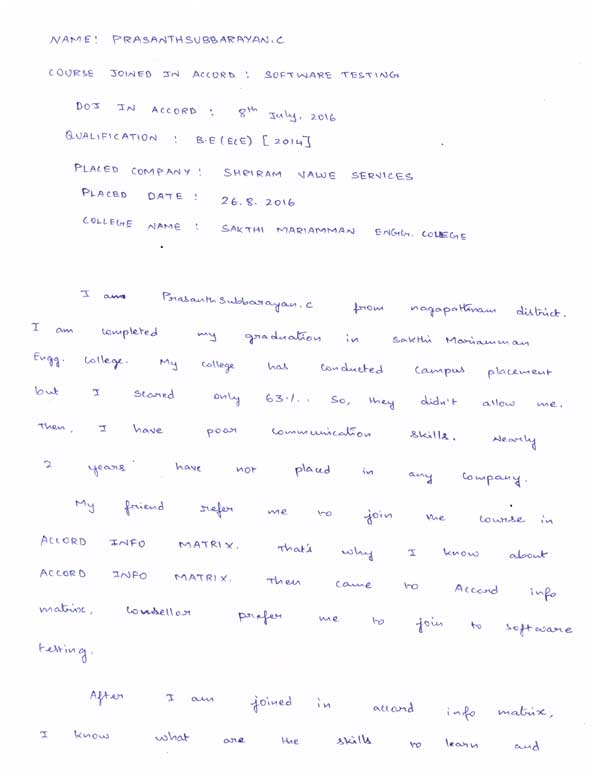 NAME: PRASANTHSUBBARAYAN.C
COURSE JOINED IN ACCORD : SOFTWARE TESTING
DOJ IN ACCORD : 8th July, 2016
QUALIFICATION : B.E (ECE) [2014]
PLACED COMPANY : SHRIRAM VALUE SERVICES
PLACED DATE : 26.8.2016
COLLEGE NAME : SAKTHI MARIAMMAN ENGG. COLLEGE
I am PrasanthSubbarayan.C from nagapattinam district.
I am completed my graduation in Sakthi Mariamman
Engg. College. My college has conducted campus placement
but I scored only 63%. So, they didn't allow me.
Then, I have poor communication skills. Nearly
2 years have not placed in any company.
My friend refer me to join the course in
ACCORD INFO MATRIX. That's why I know about
ACCORD INFO MATRIX. Then came to Accord info
matrix, counsellor prefer me to join to software
testing.
After I am joined in accord info matrix,
I know what are the skills to learn and